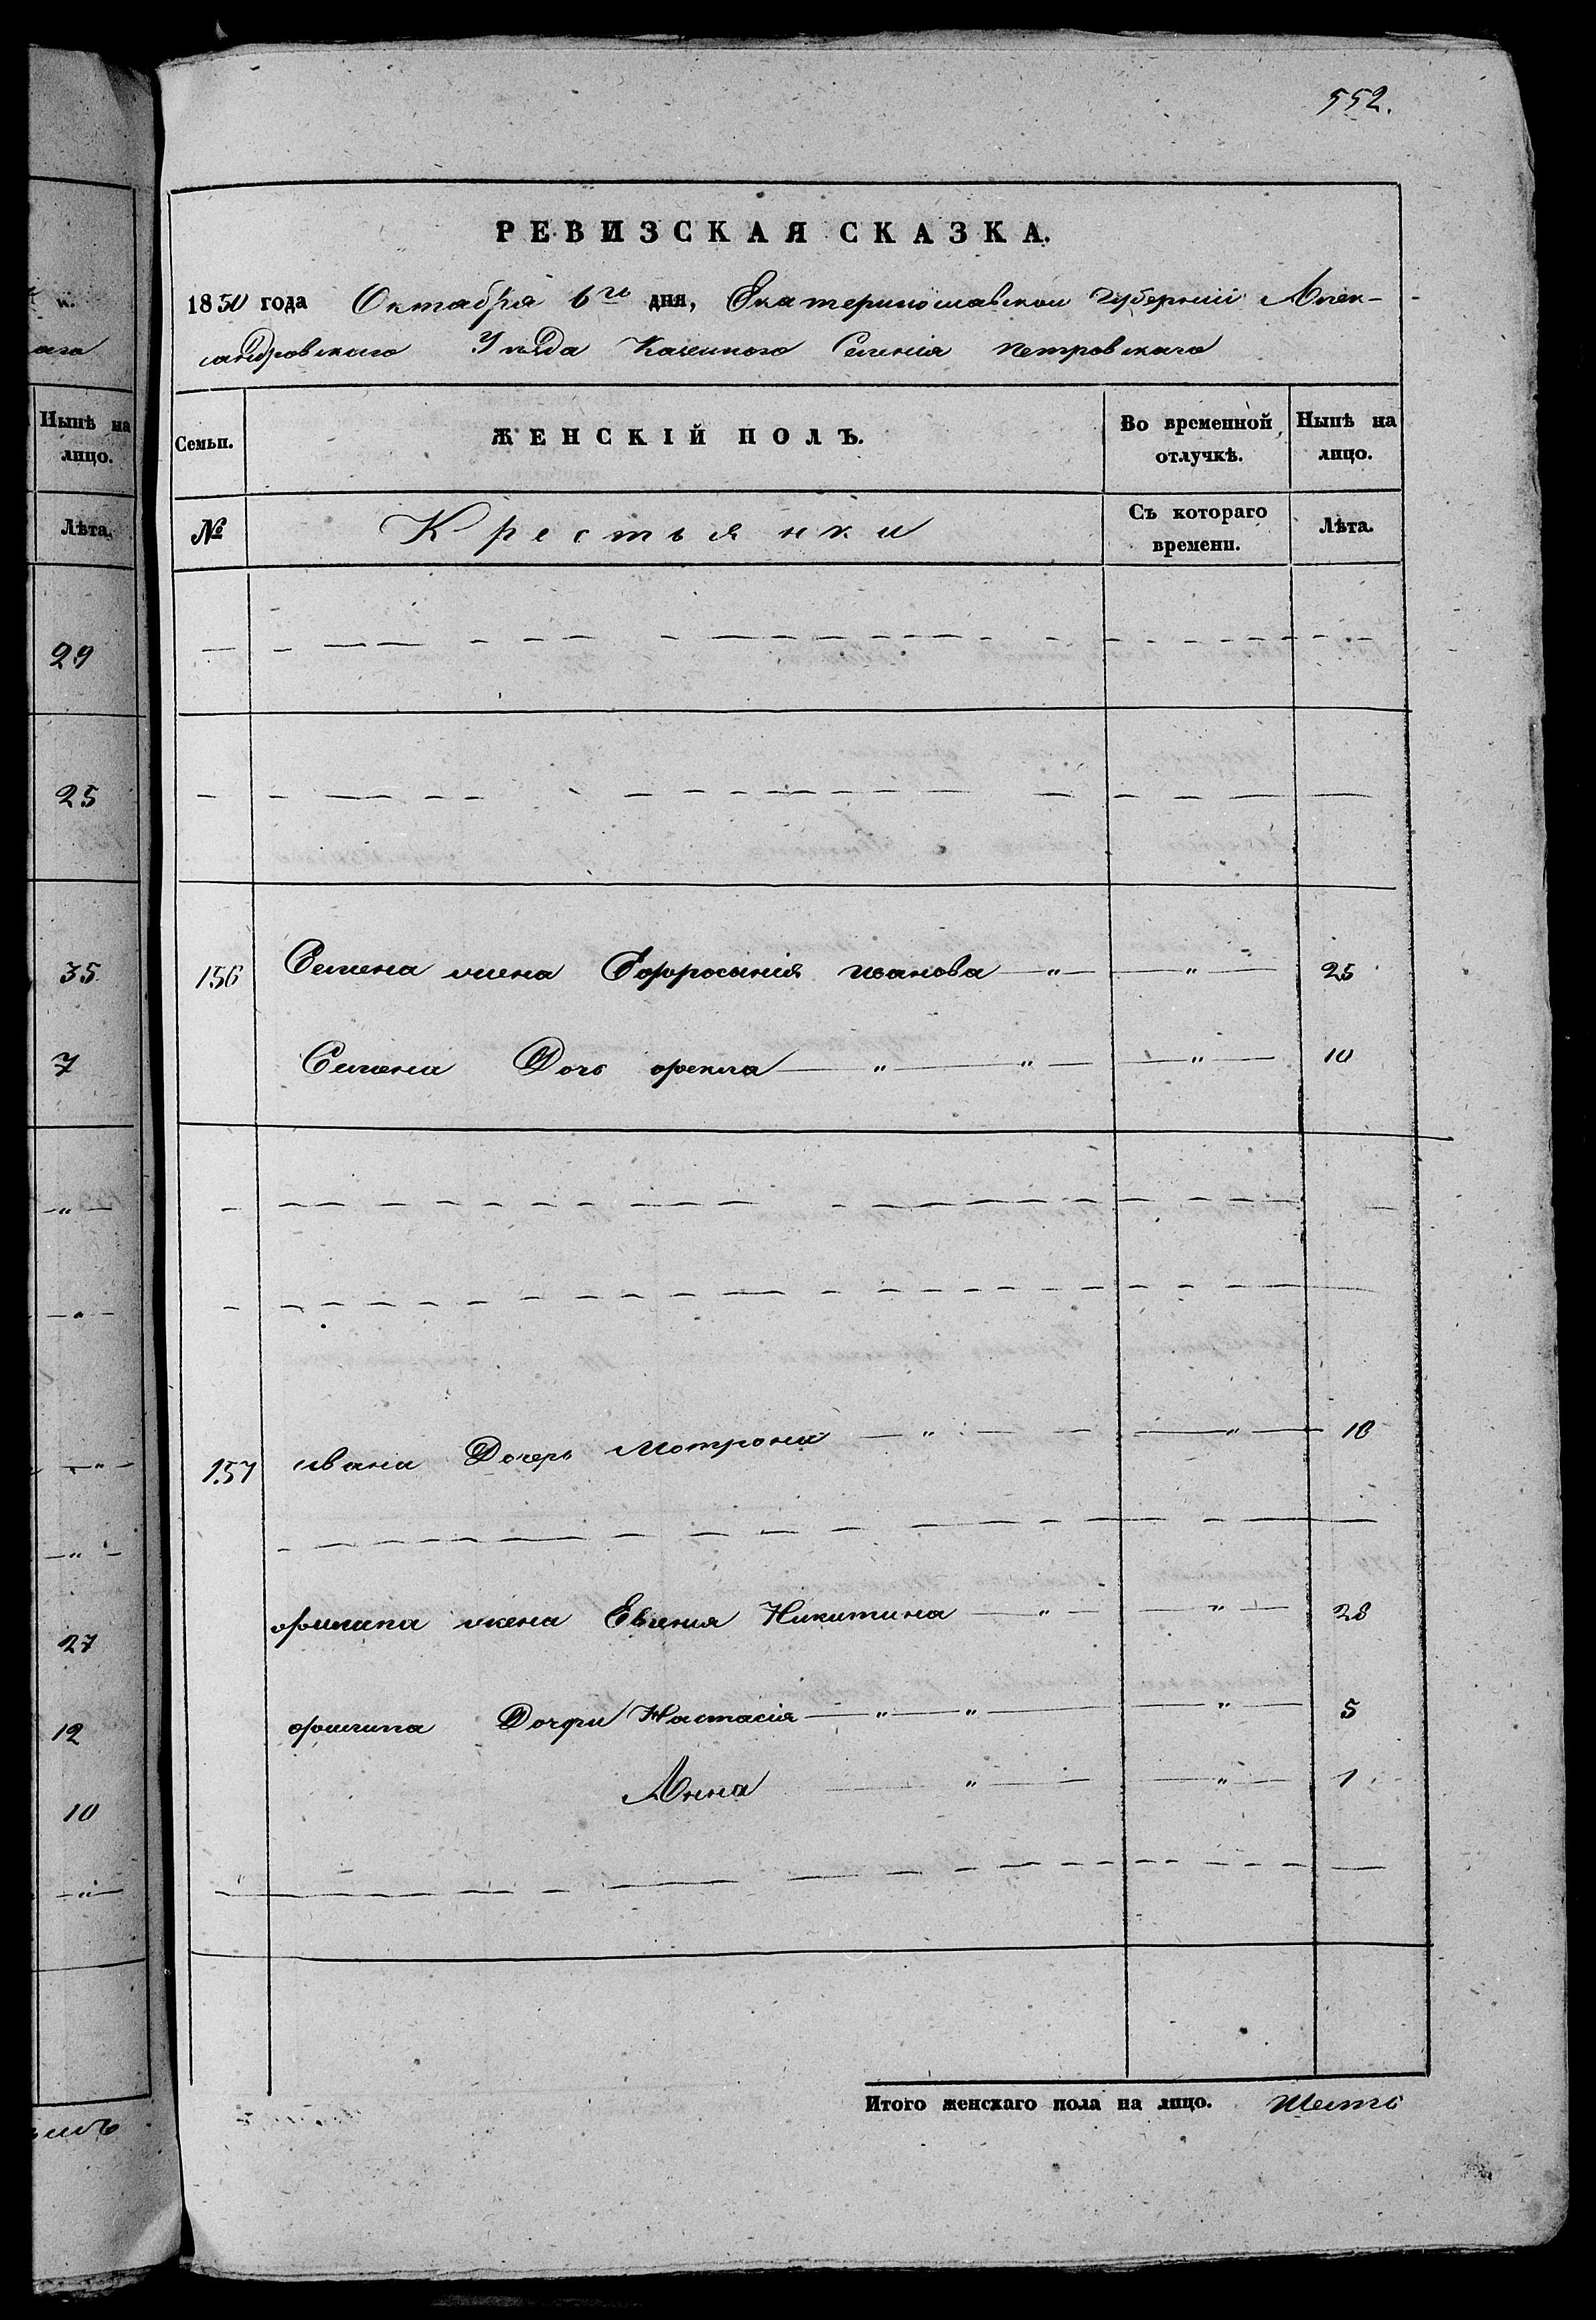 552.
РЕВИЗСКАЯ СКАЗКА.
1850 года Октября 6го дня, Екатеринославской Губернии Алек-
сандровского Уезда Казенного Селения Петровскаго
Семьи.
ЖЕНСКІЙ ПОЛЪ.
Во временной отлучкѣ.
Нынѣ на лицо.
№
Крестьянки
Съ котораго времени.
Лѣта.
156 Семена жена Ефросинія Иванова — „ — — „ — 25
Семена Дочь Фекла — „ — „ — — „ — 10
157 Ивана Дочерь Мотрона — „ — — „ — 18
Филипа жена Евгения Никитина — „ — — „ — 28
Филипа Дочери Настасія — „ — „ — — „ — 5
Анна — „ — — „ — 1
Итого женскаго пола на лицо. Шесть
Нынѣ на лицо.
Лѣта.
29
25
35
7
— „ —
— „ —
— „ —
— „ —
27
12
10
— „ —